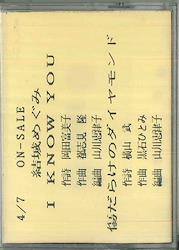 4/7 ON-SALE
結城めぐみ
I KNOW YOU
作詩 岡田冨美子
作曲 都志見 隆
編曲 山川恵津子
傷だらけのダイヤモンド
作詩 横山 武
作曲 黒石ひとみ
編曲 山川恵津子